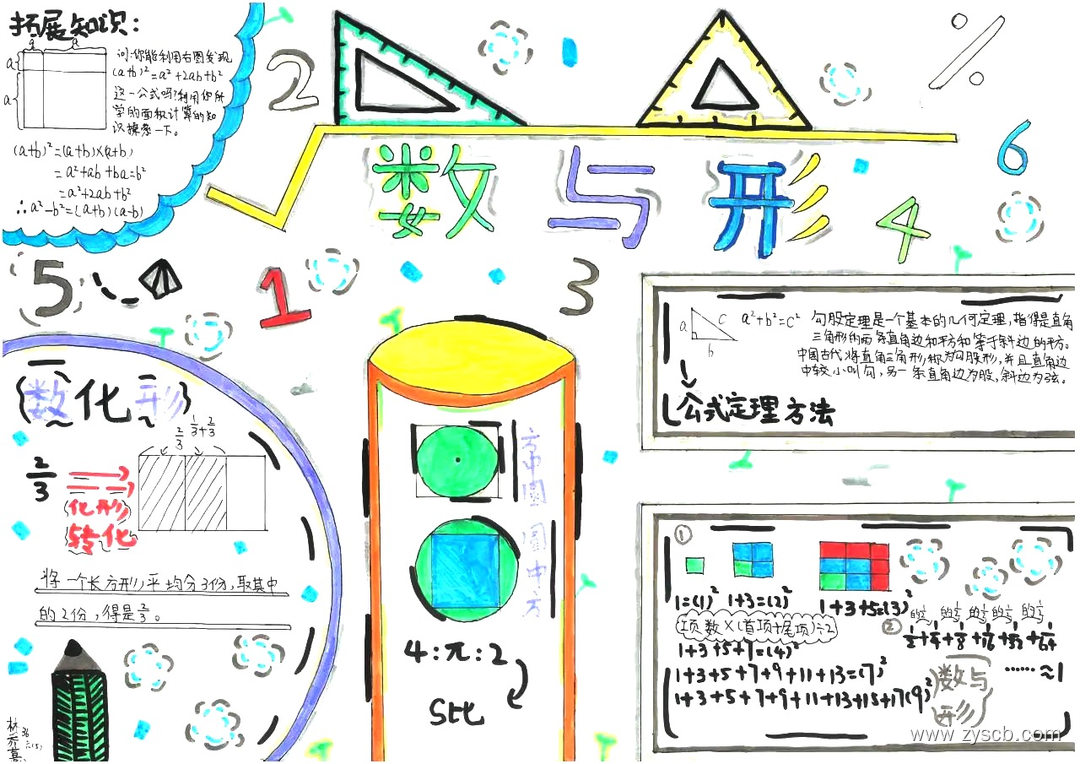 拓展知识:
a
a
a
a
问:你能利用右图发现
(a+b)²=a²+2ab+b²
这一公式吗?利用你所
学的面积计算的知
识探索一下。
(a+b)²=(a+b)×(a+b)
=a²+ab+ba=b²
=a²+2ab+b²
∴a²-b²=(a+b)(a-b)
2
%
6
4
数与形
5
1
3
a
c
b
a²+b²=c²
勾股定理是一个基本的几何定理,指得是直角
三角形的两条直角边和平方和等于斜边的平方。
中国古代将直角三角形称为勾股形,并且直角边
中较小叫勾,另一条直角边为股,斜边为弦。
公式定理方法
(数化形)
2/3
1/3+2/3
2/3
化形
转化
将一个长方形平均分3份,取其中
的2份,得是2/3。
方中圆
圆中方
4:π:2
S比
①
1=(1)² 1+3=(2)² 1+3+5=(3)²
项数×(首项+尾项)÷2
1+3+5+7=(4)²
1+3+5+7+9+11+13=(7)²
1+3+5+7+9+11+13+15+17(9)²
的1/2 的1/2 的1/2 的1/2 的1/2
②
1/2+1/4+1/8+1/16+1/32+1/64
……≈1
数与
形
www.zyscb.com